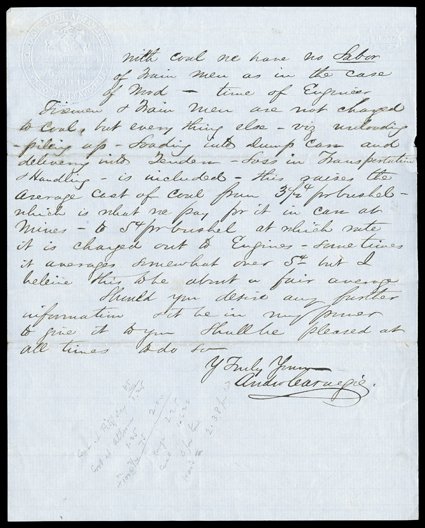 With coal we have no Labor
of Train men as in the case
of Wood - time of Engineer
Firemen & Train Men are not charged
to Coal, but every thing else - viz unloading
- piling up - Loading into dump cars and
delivering into Tenders - Loss in Transportation
& Handling - is included - this raises the
average cost of Coal from 3½¢ pr bushel -
which is what we pay for it in cars at
Mines - to 5¢ pr bushel at which rate
it is charged out to Engines - sometimes
it averages somewhat over 5¢ but I
beleive this to be about a fair average
Should you desire any further
information & it be in my power
to give it to you Shall be pleased at
all times to do so
Y Truly Yours
Andw Carnegie.